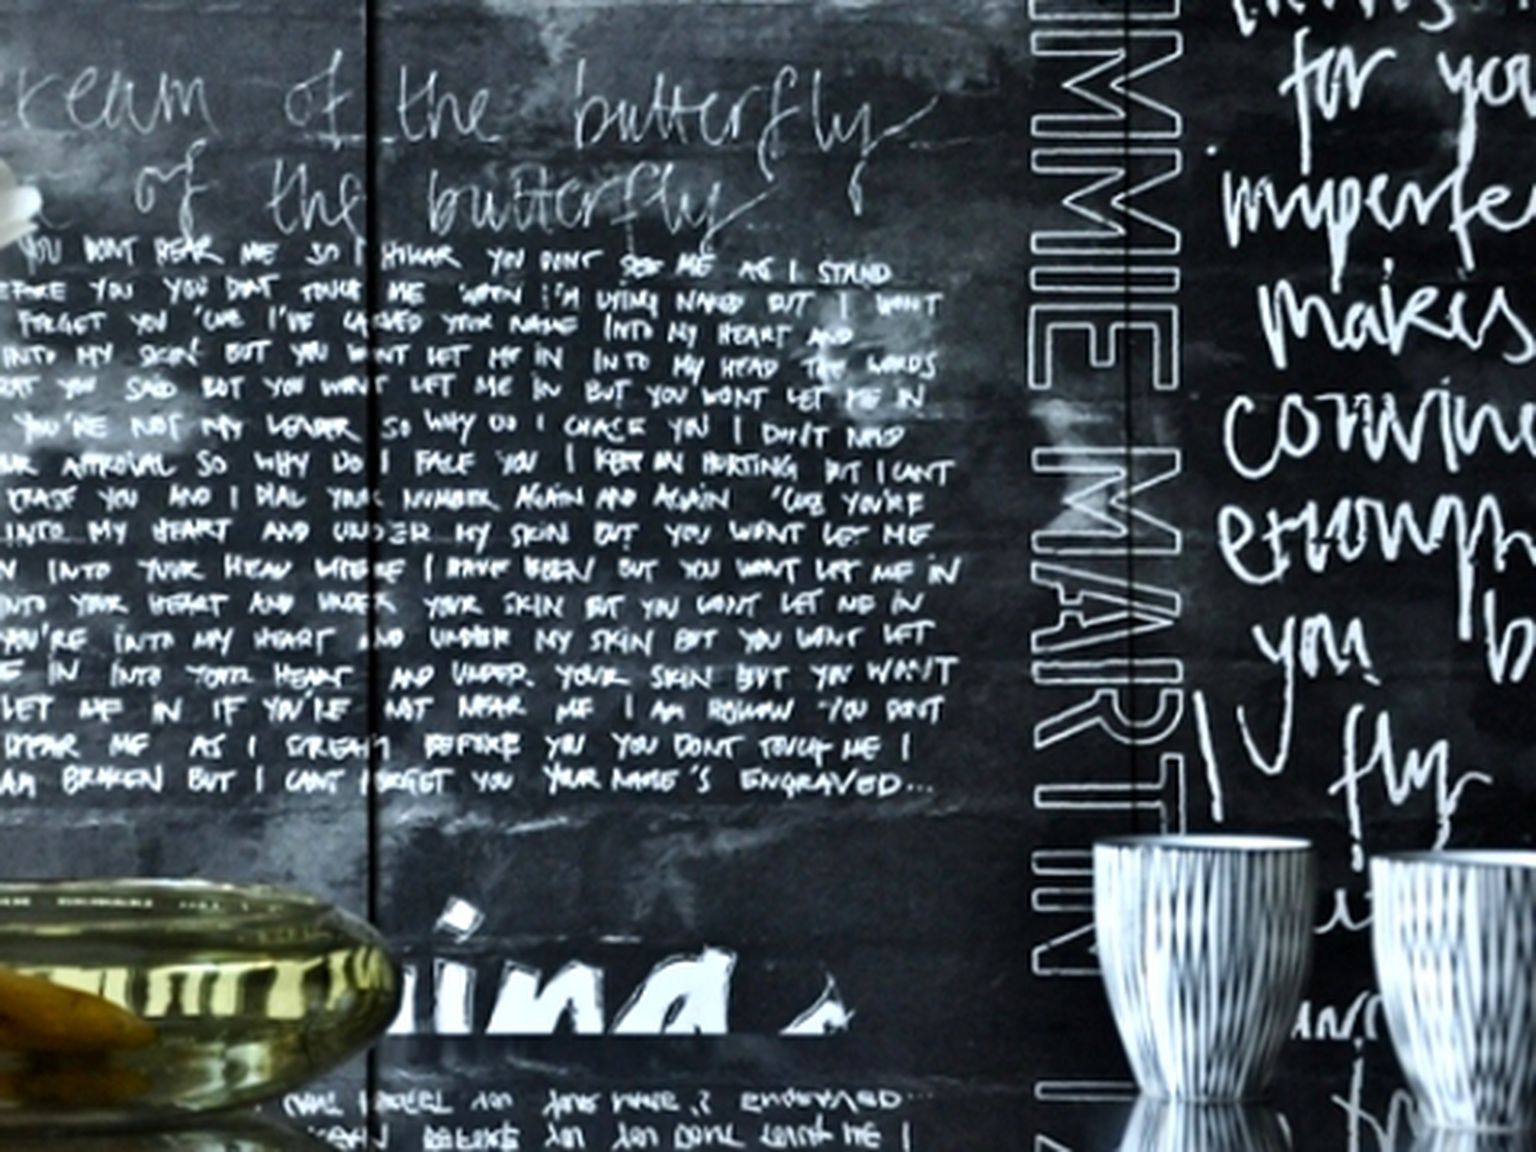 of the butterfly
of the butterfly
YOU DONT HEAR ME SO I YOU DONT SEE ME AS I STAND
YOU YOU DONT TOUCH ME WHEN I'M LYING NAKED BUT I WONT
FORGET YOU 'CUS I'VE CARVED YOUR NAME INTO MY HEART AND
INTO MY SKIN BUT YOU WONT LET ME IN INTO MY HEAD THE WORDS
YOU SAID BUT YOU WONT LET ME IN BUT YOU WONT LET ME IN
YOU'RE NOT MY LEADER SO WHY DO I CHASE YOU I DON'T NEED
APPROVAL SO WHY DO I FACE YOU I KEEP ON HURTING BUT I CANT
ERASE YOU AND I DIAL YOUR NUMBER AGAIN AND AGAIN 'CUS YOU'RE
INTO MY HEART AND UNDER MY SKIN BUT YOU WONT LET ME
INTO YOUR HEAD WHERE I HAVE BEEN BUT YOU WONT LET ME IN
INTO YOUR HEART AND UNDER YOUR SKIN BUT YOU WONT LET ME IN
YOU'RE INTO MY HEART AND UNDER MY SKIN BUT YOU WONT LET
IN INTO YOUR HEART AND UNDER YOUR SKIN BUT YOU WONT
LET ME IN IF YOU'RE NOT NEAR ME I AM HOLLOW YOU DONT
HEAR ME AS I SCREAM BEFORE YOU YOU DONT TOUCH ME I
AM BROKEN BUT I CANT FORGET YOU YOUR NAME'S ENGRAVED...
IMMIE MARTIN
for you
imperfe
makes
convinc
enough
you b
fly